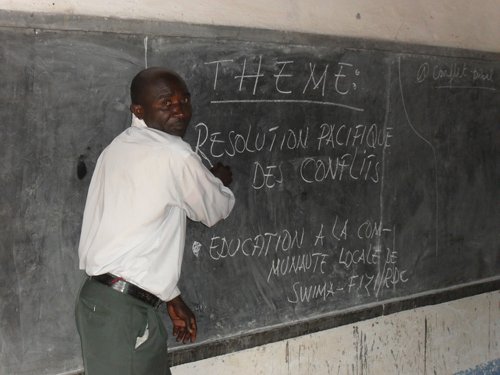 THEME:
RESOLUTION PACIFIQUE
DES CONFLITS
EDUCATION A LA COM-
MUNAUTE LOCALE DE
SWIMA-FIZI/RDC
Conflit